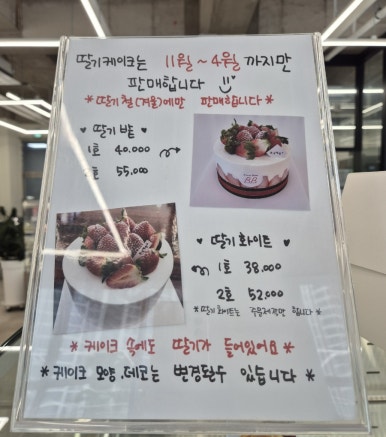 딸기케이크는 11월 ~ 4월 까지만
판매합니다
* 딸기 철(겨울)에만 판매합니다 *
♥ 딸기 밭 ♥
1호 40.000
2호 55.000
♥ 딸기 화이트 ♥
1호 38.000
2호 52.000
* 딸기 화이트는 주문제작만 합니다 *
* 케이크 속에도 딸기가 들어있어요 *
* 케이크 모양, 데코는 변경될수 있습니다 *